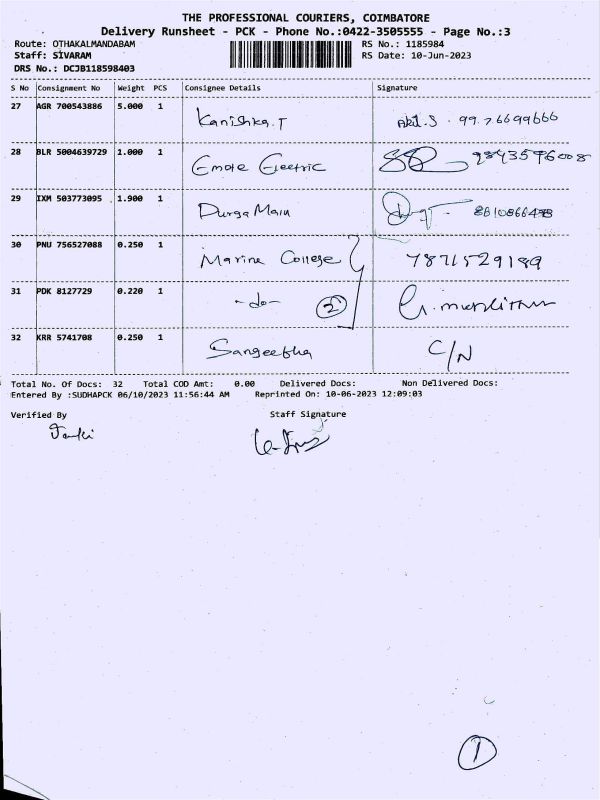 THE PROFESSIONAL COURIERS, COIMBATORE
Delivery Runsheet - PCK - Phone No.:0422-3505555 - Page No.:3
Route: OTHAKALMANDABAM RS No.: 1185984
Staff: SIVARAM RS Date: 10-Jun-2023
DRS No.: DCJB118598403
S No Consignment No Weight PCS Consignee Details Signature
27 AGR 700543886 5.000 1 Kanishka.T 99.76699666
28 BLR 5004639729 1.000 1 Emote Electric
29 IXM 503773095 1.900 1 Durga Main
30 PNU 756527088 0.250 1 Marine College 7871529189
31 PDK 8127729 0.220 1 -do- 2
32 KRR 5741708 0.250 1 C/N
Total No. Of Docs: 32 Total COD Amt: 0.00 Delivered Docs: Non Delivered Docs:
Entered By :SUDHAPCK 06/10/2023 11:56:44 AM Reprinted On: 10-06-2023 12:09:03
Verified By Staff Signature
1